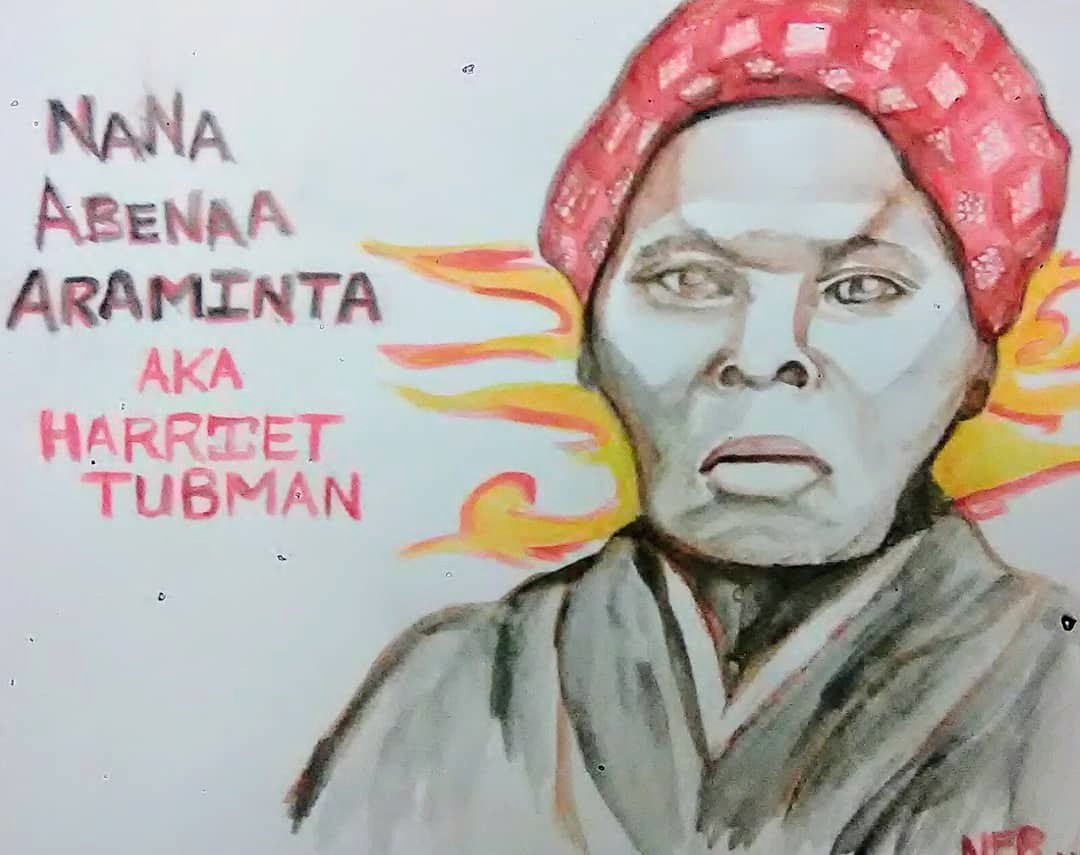 NANA
ABENAA
ARAMINTA
AKA
HARRIET
TUBMAN